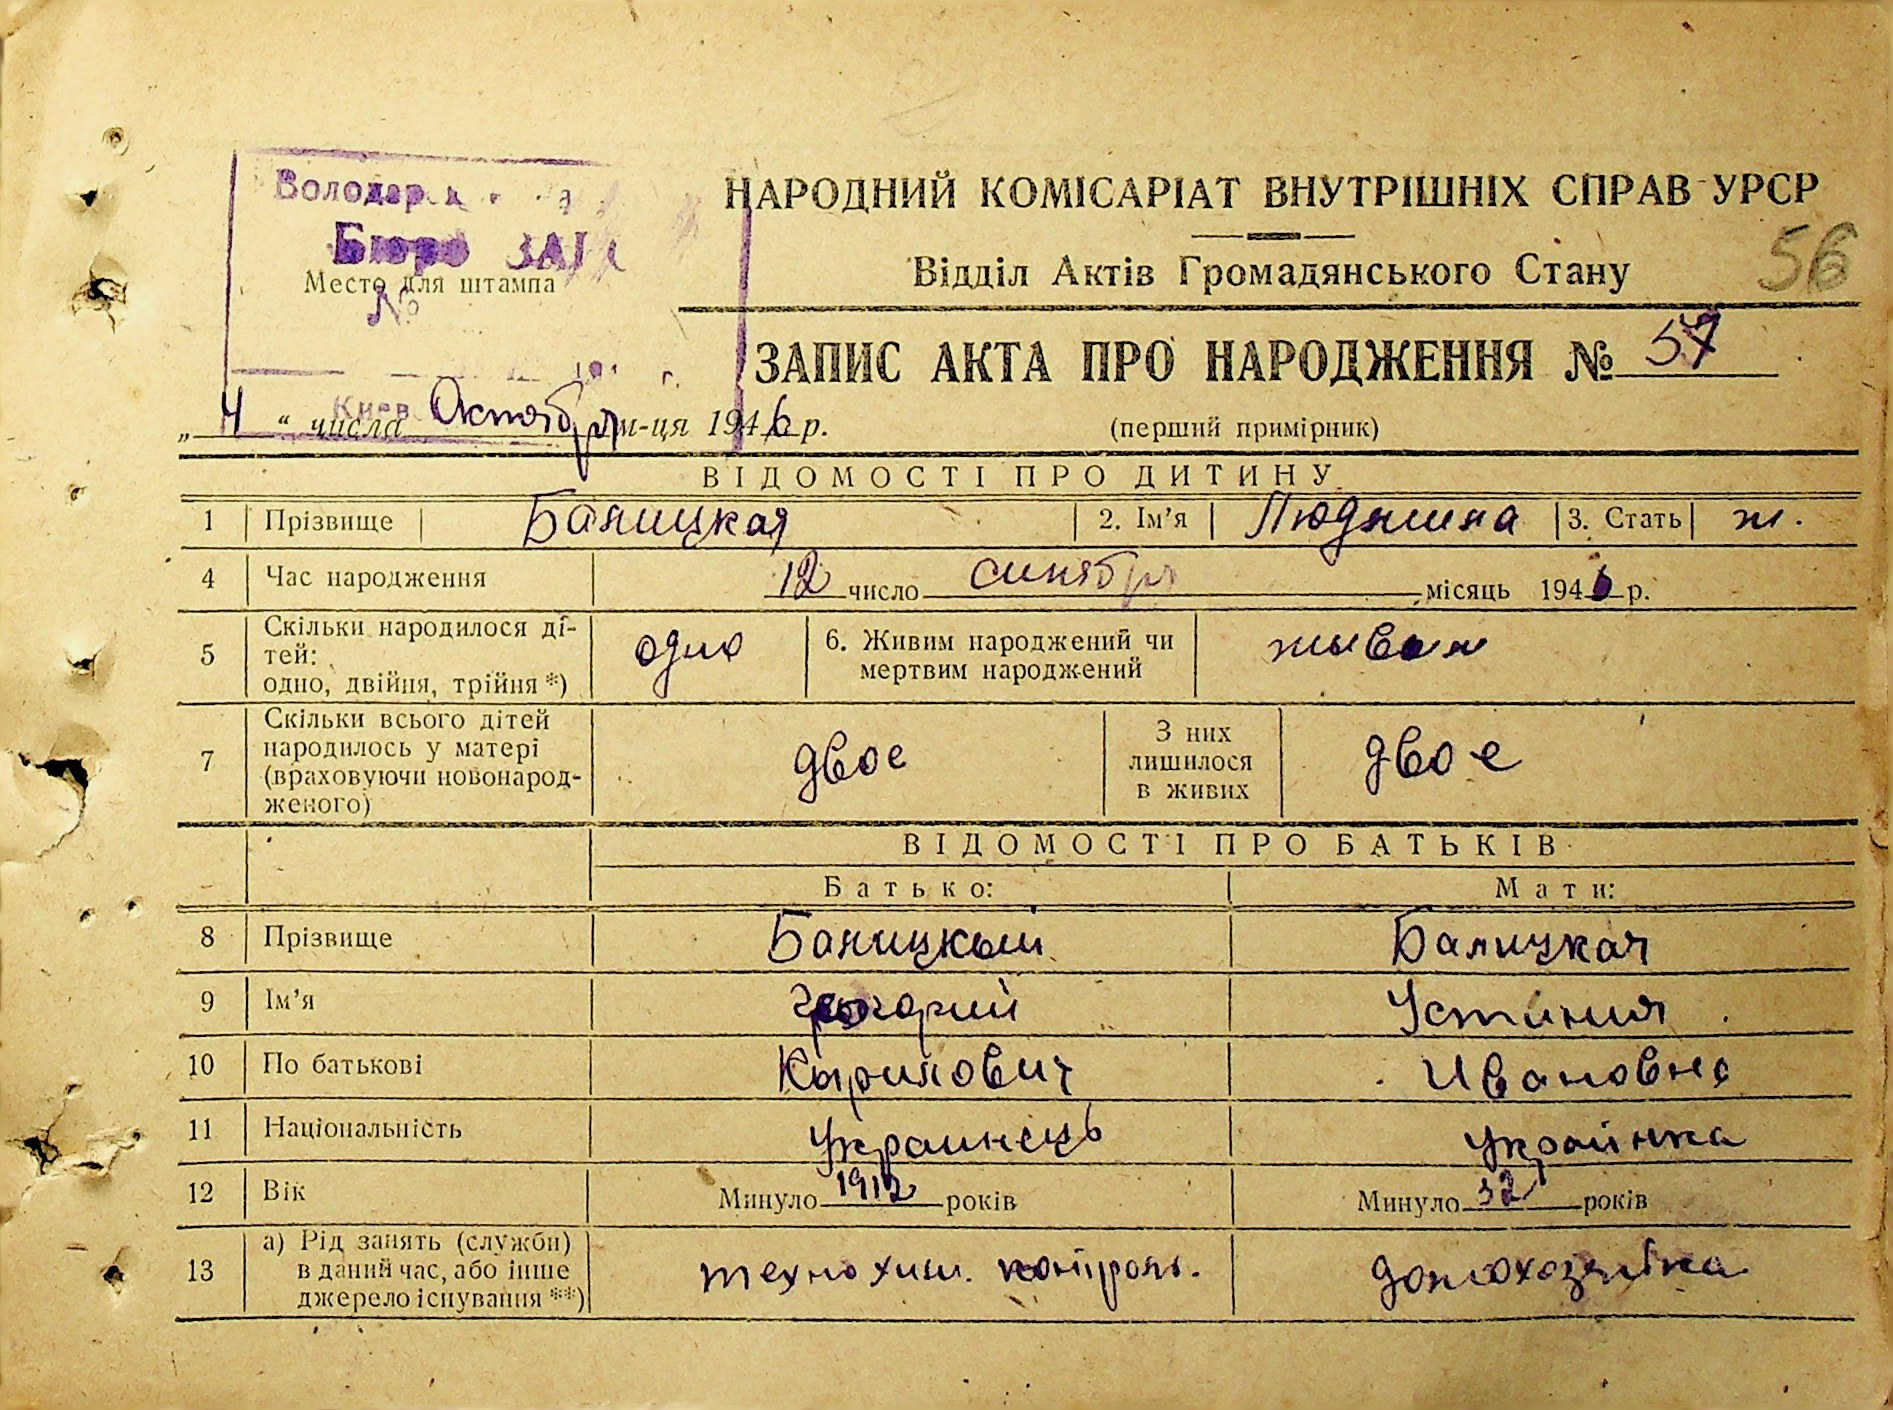 Володар
Бюро ЗАГС
Место для штампа
№
НАРОДНИЙ КОМІСАРІАТ ВНУТРІШНІХ СПРАВ УРСР
Відділ Актів Громадянського Стану
56
ЗАПИС АКТА ПРО НАРОДЖЕННЯ № 57
Киев
„ 4 “ числа Октября м-ця 1946 р.
(перший примірник)
ВІДОМОСТІ ПРО ДИТИНУ
1 Прізвище Балицкая 2. Ім’я Людмила 3. Стать ж.
4 Час народження 12 число синтября місяць 1946 р.
5 Скільки народилося ді-
тей:
одно, двійня, трійня *) одно 6. Живим народжений чи
мертвим народжений живым
7 Скільки всього дітей
народилось у матері
(враховуючи новонарод-
женого) двое З них
лишилося
в живих двое
ВІДОМОСТІ ПРО БАТЬКІВ
Батько: Мати:
8 Прізвище Балицкый Балицкая
9 Ім’я Григорий Устиния
10 По батькові Кырилович Ивановна
11 Національність Украинець Украінка
12 Вік Минуло 1912 років Минуло 32 років
13 а) Рід занять (служби)
в даний час, або інше
джерело існування **) технохим. контроль. домохозяйка